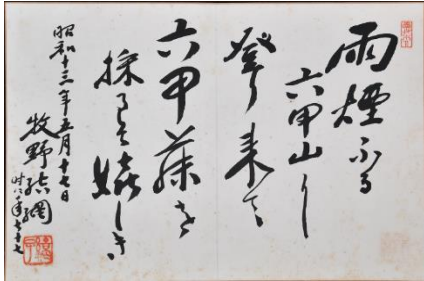 雨煙ふる
六甲山に
登り来て
六甲藤を
採る嬉しき
昭和十三年五月十七日
牧野結網
時年七十七